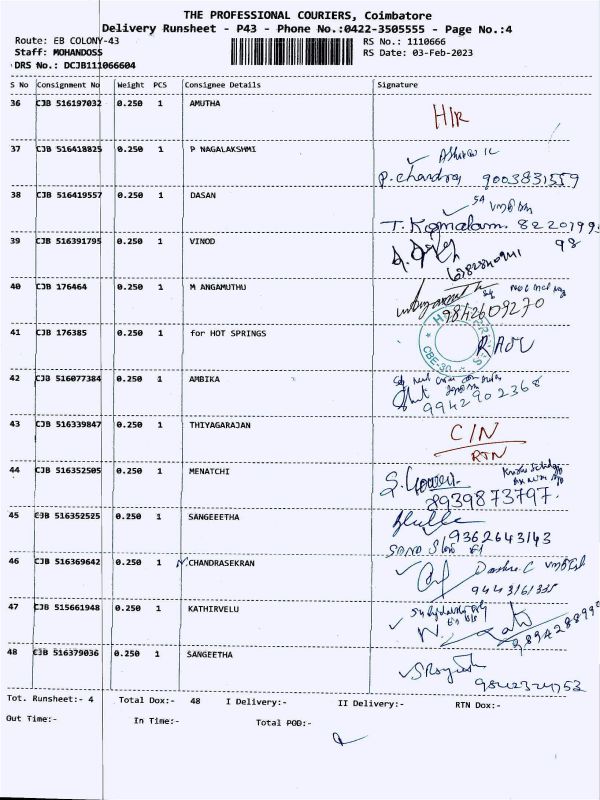 THE PROFESSIONAL COURIERS, Coimbatore
Delivery Runsheet - P43 - Phone No.:0422-3505555 - Page No.:4
Route: EB COLONY-43 RS No.: 1110666
Staff: MOHANDOSS RS Date: 03-Feb-2023
DRS No.: DCJB111066604
S No Consignment No Weight PCS Consignee Details Signature
36 CJB 516197032 0.250 1 AMUTHA H/R
37 CJB 516418825 0.250 1 P NAGALAKSHMI
P. chandra 9003831559
38 CJB 516419557 0.250 1 DASAN
T. Komalam. 8220799
98
39 CJB 516391795 0.250 1 VINOD
40 CJB 176464 0.250 1 M ANGAMUTHU
9842609270
41 CJB 176385 0.250 1 for HOT SPRINGS
CBE-30
RAJU
42 CJB 516077384 0.250 1 AMBIKA
9942902368
43 CJB 516339847 0.250 1 THIYAGARAJAN C/N
RTN
44 CJB 516352505 0.250 1 MENATCHI
S. Gowri
8939873797.
45 CJB 516352525 0.250 1 SANGEEETHA
9362643143
46 CJB 516369642 0.250 1 CHANDRASEKRAN
9443161335
47 CJB 515661948 0.250 1 KATHIRVELU
48 CJB 516379036 0.250 1 SANGEETHA
Tot. Runsheet:- 4 Total Dox:- 48 I Delivery:- II Delivery:- RTN Dox:-
Out Time:- In Time:- Total POD:-